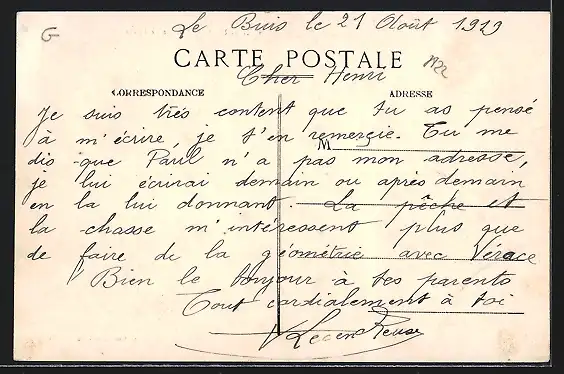 G
Le Buis le 21 Août 1919
1922
CARTE POSTALE
Cher Henri
CORRESPONDANCE ADRESSE
Je suis très content que tu as pensé
à m'écrire, je t'en remercie. Tu me
M
dis que Paul n'a pas mon adresse,
je lui écrirai demain ou après demain
en la lui donnant. La pêche et
la chasse m'intéressent plus que
de faire de la géométrie avec Vérace
Bien le bonjour à tes parents
Tout cordialement à toi